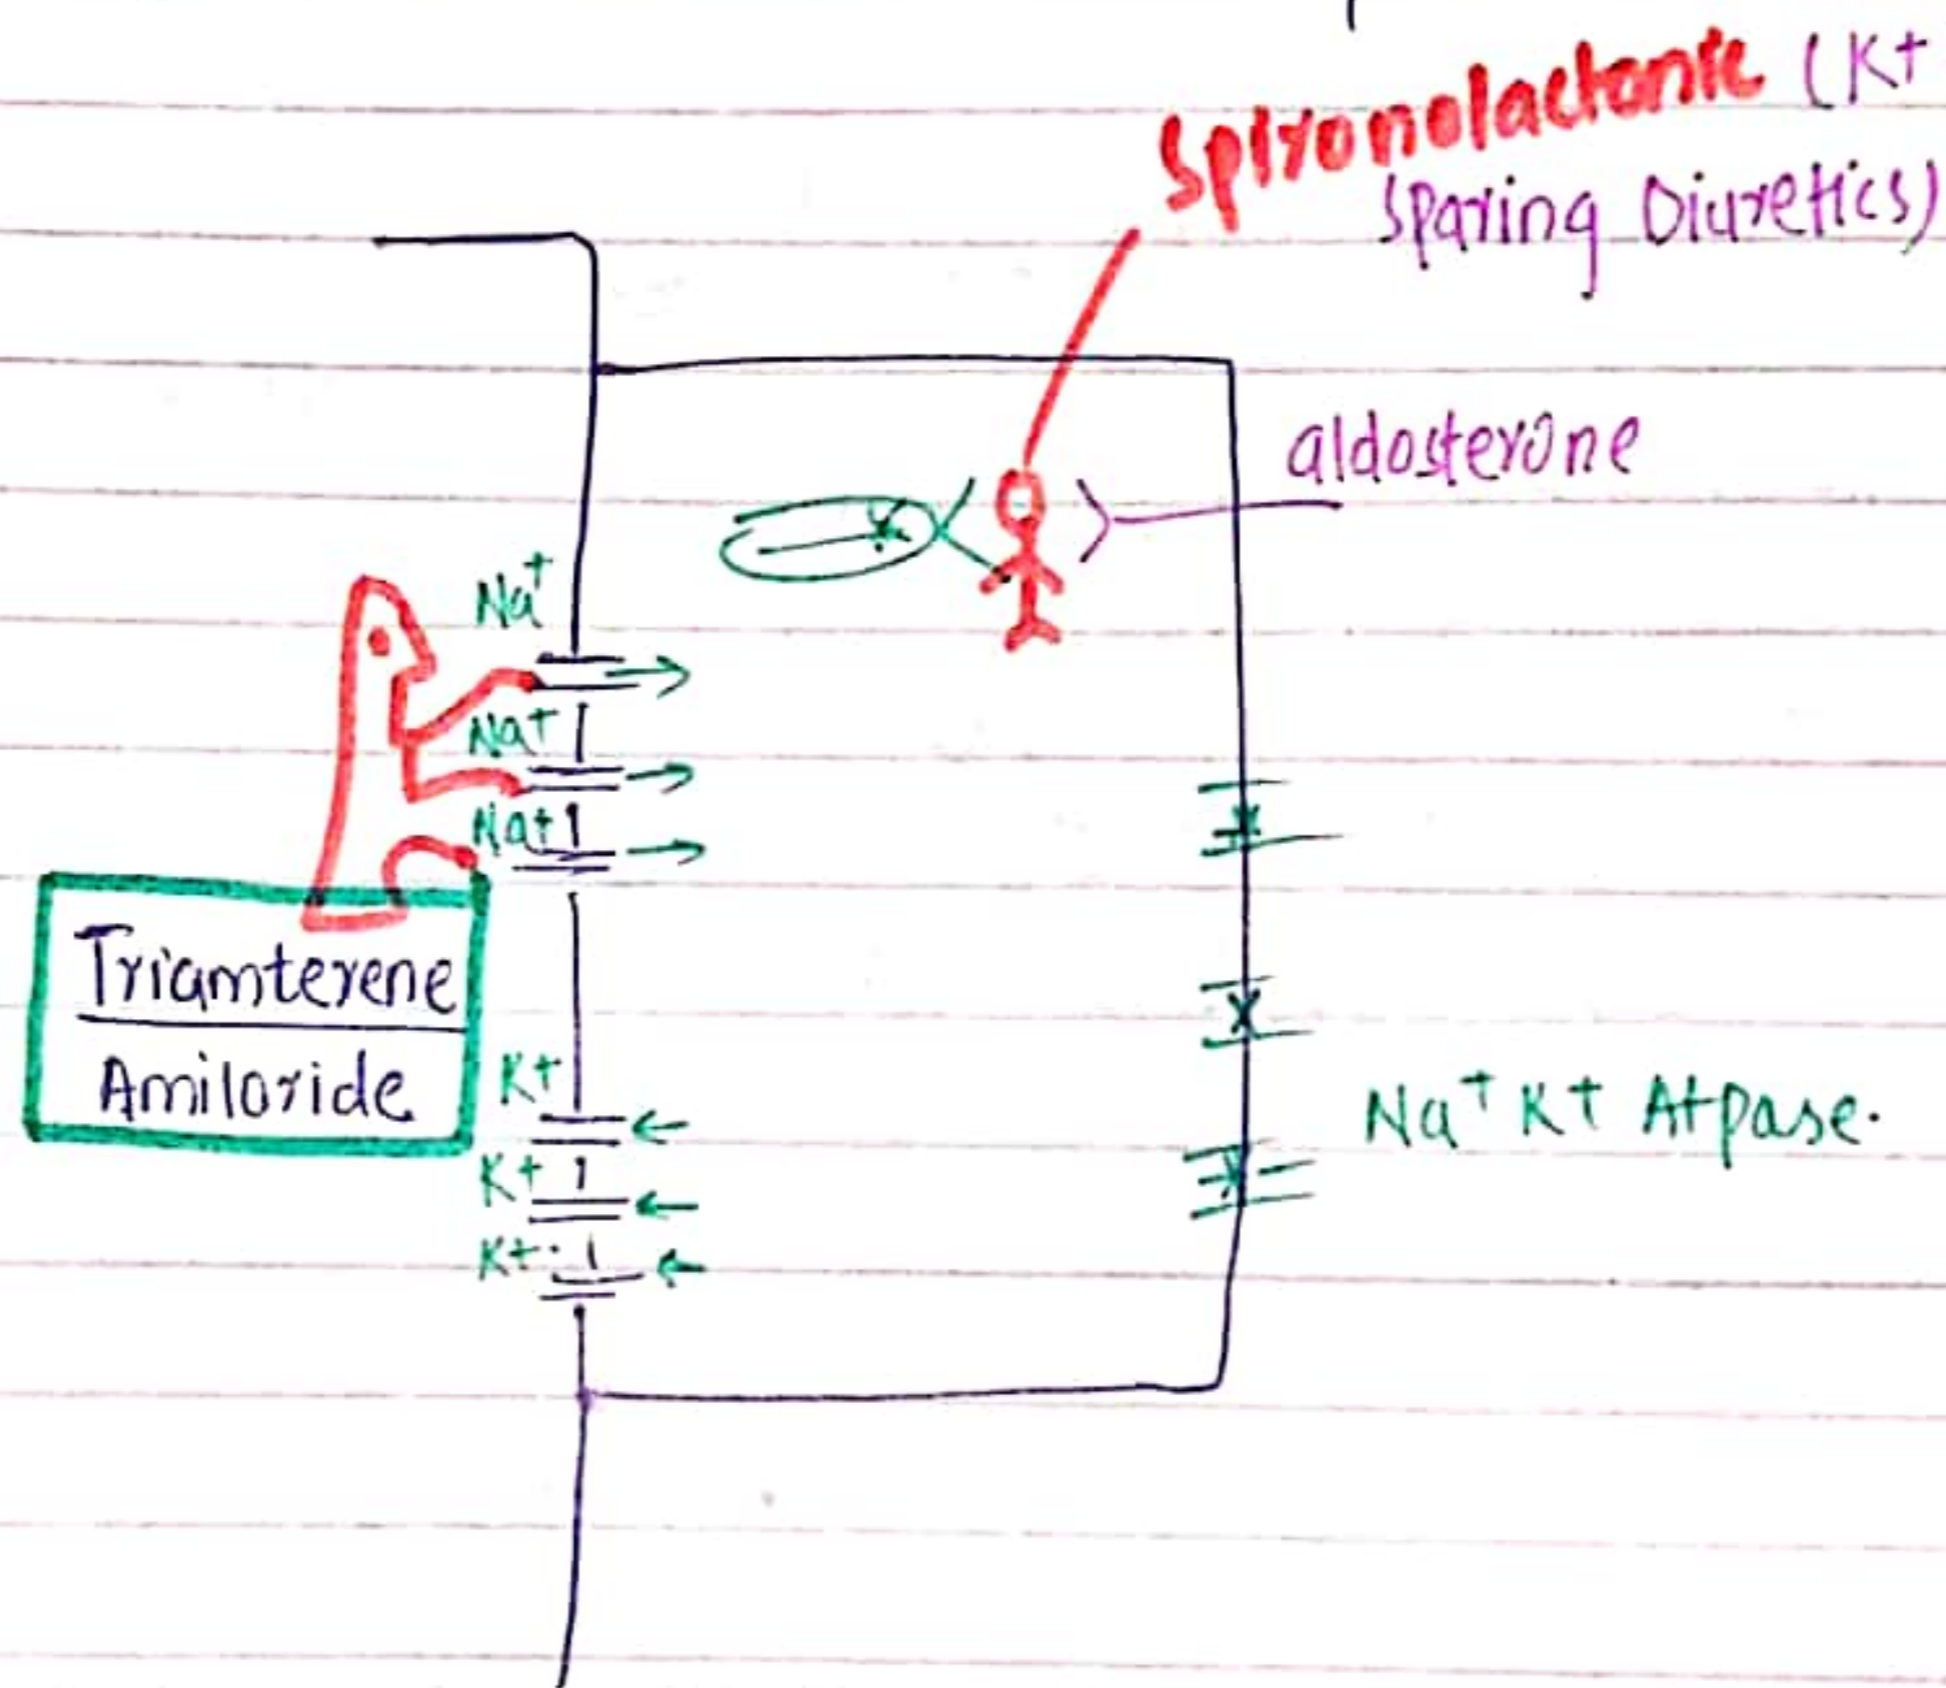 Spironolactone (K+
sparing Diuretics)
aldosterone
Na+
Na+
Na+
Triamterene
Amiloride
K+
Na+ K+ Atpase.
K+
K+